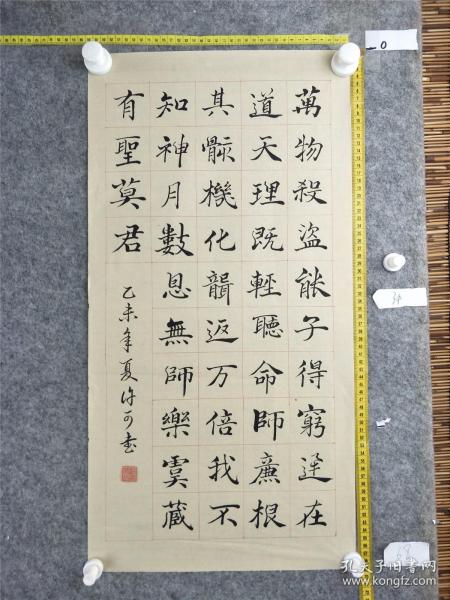 萬物殺盜能子得窮逆在
道天理既輕聽命師廉根
其骸機化聾返万倍我不
知神月數息無師樂虞藏
有聖莫君
乙未年夏許可書
0
孔夫子旧書网
www.kongfz.com